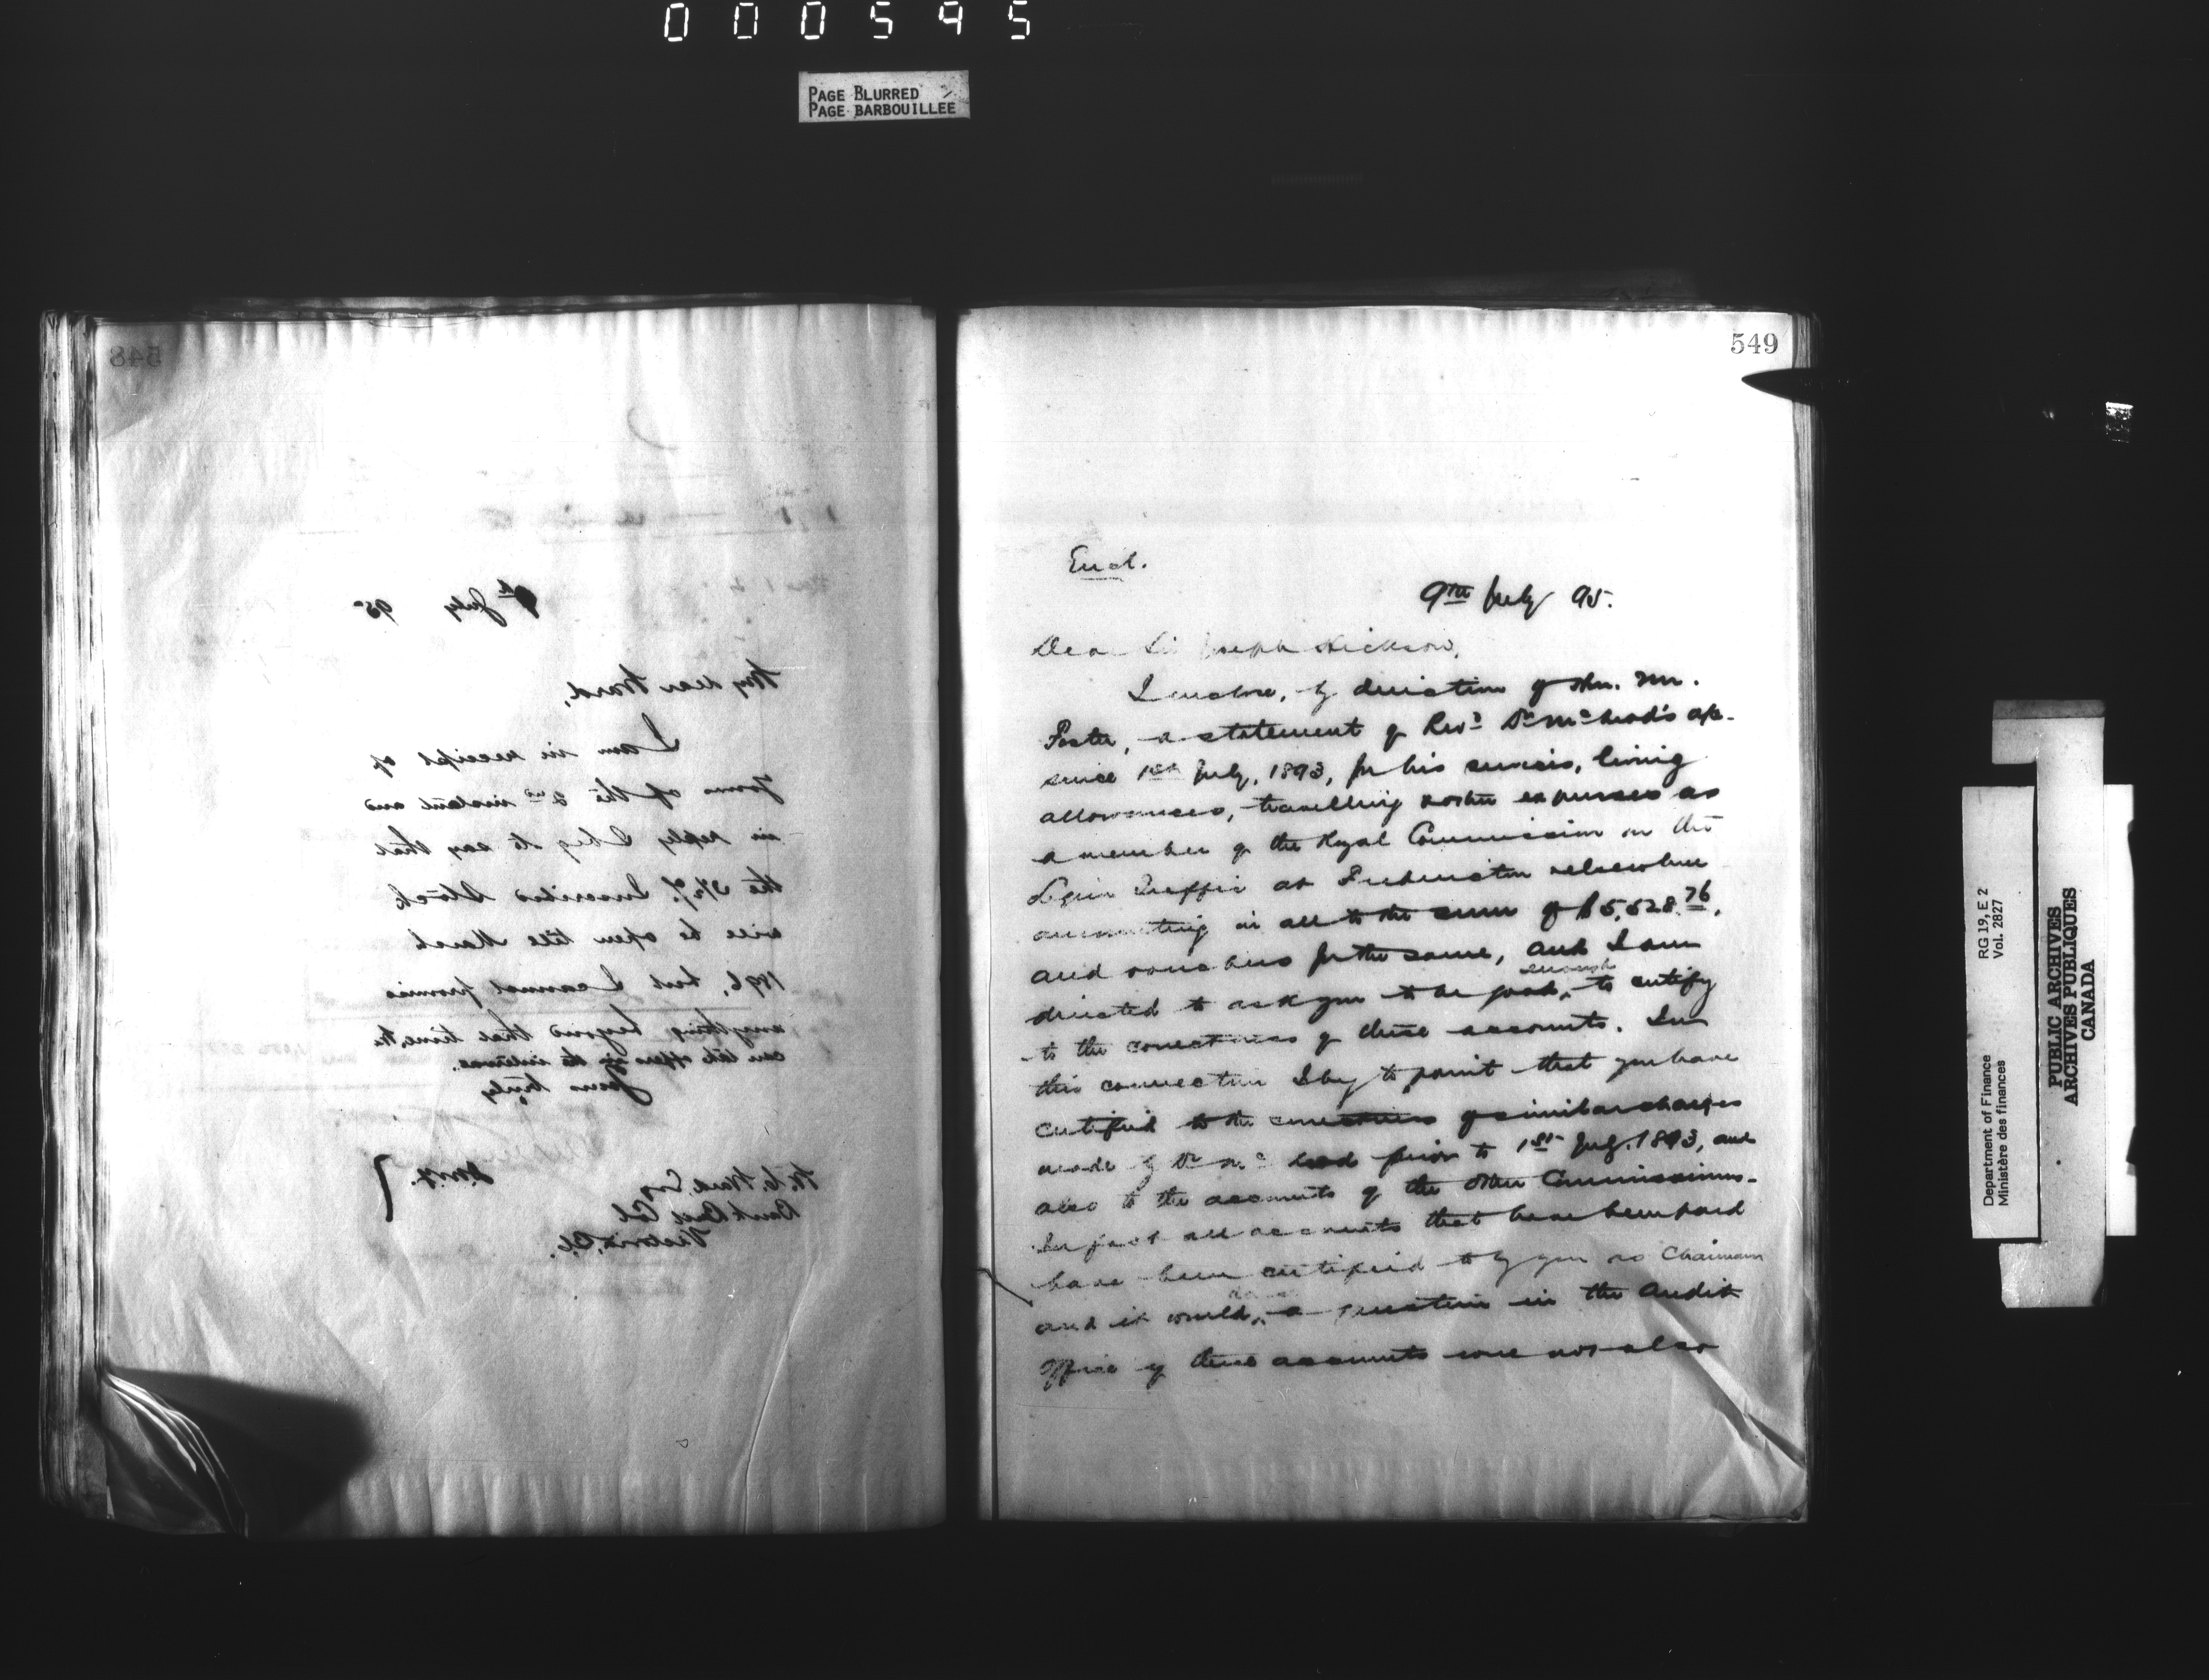 000595
PAGE BLURRED
PAGE BARBOUILLEE
548
9th July 95
My dear Ward,
I am in receipt of
yours of the 2nd instant and
in reply I beg to say that
the 3½% Inscribed Stock
will be open till March
1896, but I cannot promise
anything beyond that time,
can take offers in the interval.
Yours truly
J.M.C.
W. C. Ward Esq
Bank Brit Col
Victoria, B.C.
549
Encl.
9th July 95.
Dear Sir Joseph Hickson,
I enclose, by direction of Hon. Mr.
Foster, a statement of Revd Dr McLeod's a/c.
since 1st July, 1893, for his services, living
allowances, travelling & other expenses as
a member of the Royal Commission on the
Liquor Traffic at Fredericton & elsewhere
amounting in all to the sum of $5,528.76,
and vouchers for the same, and I am
directed to ask you to be good enough to certify
to the correctness of these accounts. In
this connection I beg to point that you have
certified to the correctness of similar charges
made by Dr McLeod prior to 1st July, 1893, and
also to the accounts of the other Commissioners.
In fact all accounts that have been paid
have been certified to by you as Chairman
and it would a question in the Audit
Office if these accounts were not also
Department of Finance
Ministère des finances
RG 19, E 2
Vol. 2827
PUBLIC ARCHIVES
ARCHIVES PUBLIQUES
CANADA